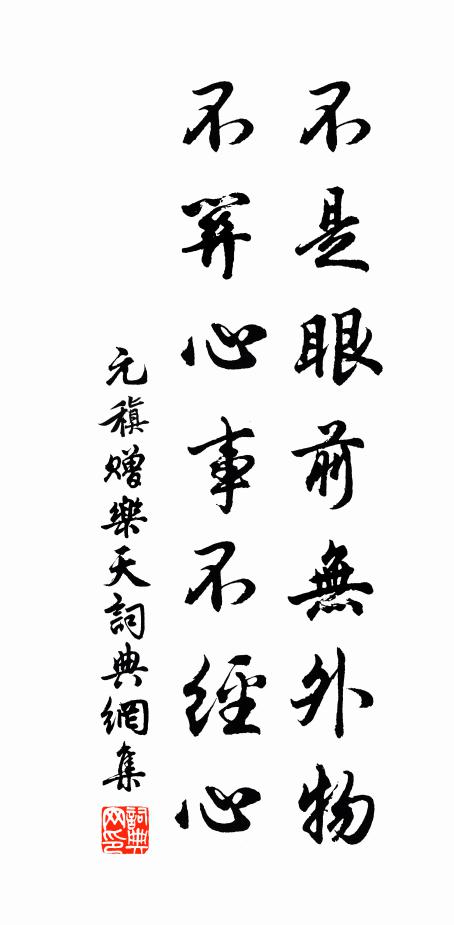 不是眼前無外物
不關心事不經心
元稹贈樂天詞典網集
詞典
网印